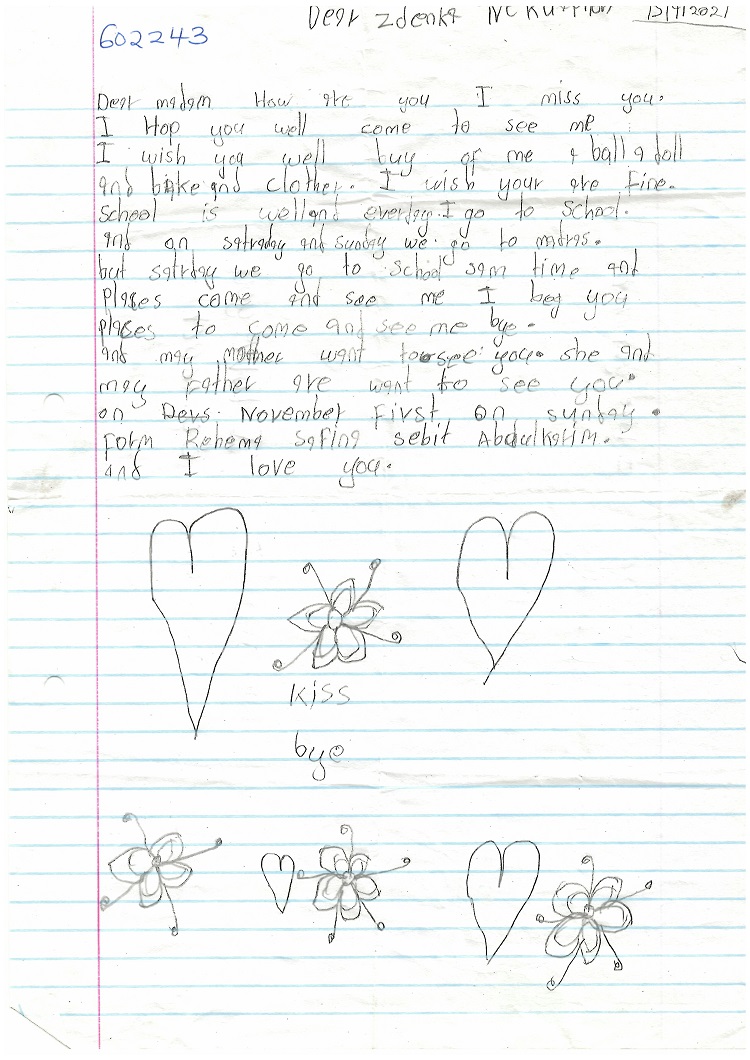 Dear Zdenka
602243
Dear madam How are you I miss you.
I Hop you well come to see me
I wish you well buy of me a ball a doll
and bike and clother. I wish your are fine.
School is well and everday. I go to School.
and on satraday and sunday we go to madras.
but satrday we go to school sam time and
plases come and see me I beg you
places to come and see me bye.
and may mother want to see you. she and
may Father are want to see you.
on Devs. November First on sunday.
form Rehema safina sebit Abdulkarim.
and I love you.
kiss
bye